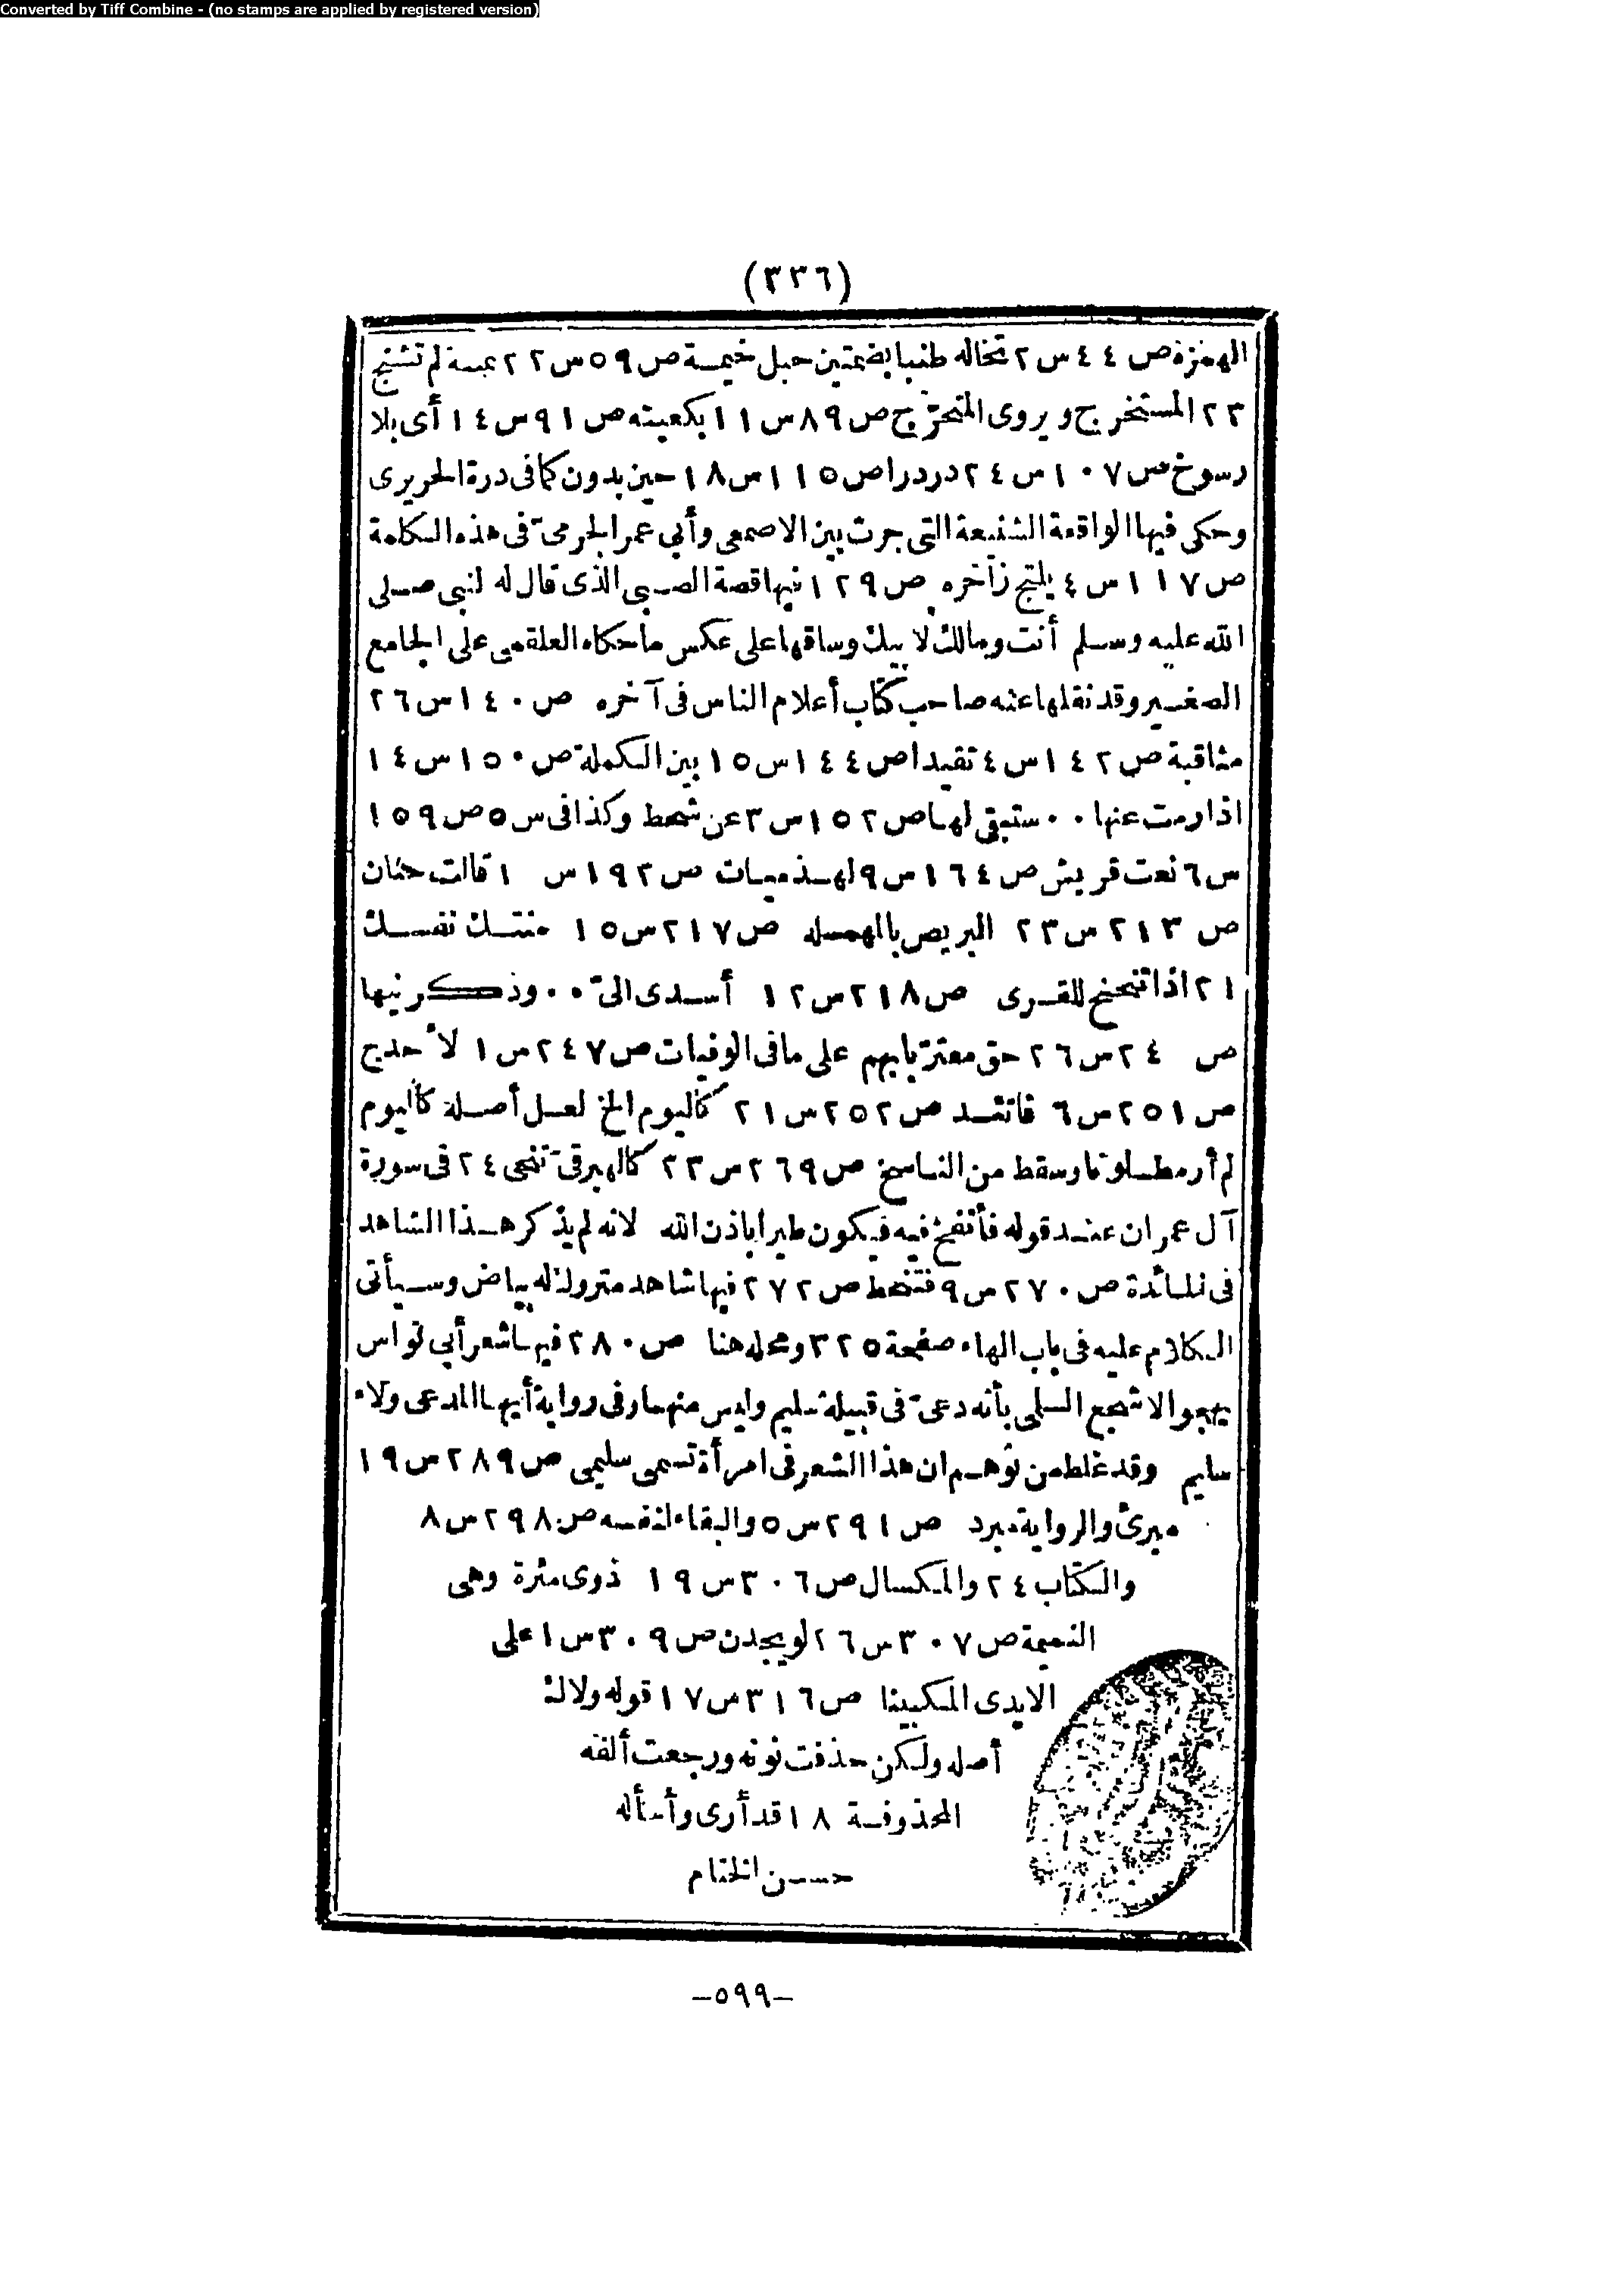 Converted by Tiff Combine - (no stamps are applied by registered version)
(٣٣٦)
الهمزة ص ٤٤ س ٢ تخاله طنبا بضمتين حبل خيمة ص ٥٩ س ٢٢ لم تشنج
٢٣ المستخرج ويروى المتحرّج ص ٨٩ س ١١ بكعبته ص ٩١ س ١٤ أى بلا
رسوخ ص ١٠٧ س ٢٤ درردا ص ١١٥ س ١٨ حين بدون كما فى درة الحريرى
وحكى فيها الواقعة الشنيعة التى جرت بين الاصمعى وأبي عمر الجرمىّ فى هذه الكلمة
ص ١١٧ س ٤ يلتج زآخره ص ١٢٩ فيها قصة الصبى الذى قال له لنبى صلى
الله عليه وسلم أنت ومالك لابيك وساقها على عكس ما حكاه العلقمى على الجامع
الصغير وقد نقلها عنه صاحب كتاب أعلام الناس فى آخره ص ١٤٠ س ٢٦
مثاقبة ص ١٤٢ س ٤ تقيدا ص ١٤٤ س ١٥ بين الكملة ص ١٥٠ س ١٤
اذا رمت عنها ٠٠ ستبقى لها ص ١٥٢ س ٣ عن شحط وكذا فى س ٥ ص ١٥٩
س ٦ نعت قريش ص ١٦٤ س ٩ لهذميات ص ١٩٣ س ١ قالت حنان
ص ٢١٣ س ٢٣ البريص بالهمله ص ٢١٧ س ١٥ منتك نفسك
٢١ اذا تنحنح للقرى ص ٢١٨ س ١٢ أسدى الىّ ٠٠ وذكر فيها
ص ٢٤ س ٢٦ حق معترّ بابهم على ما فى الوفيات ص ٢٤٧ س ١ لأحدج
ص ٢٥١ س ٦ فانشد ص ٢٥٢ س ٢١ كاليوم الخ لعل أصله كاليوم
لم أر مطلوبا وسقط من الناسخ ص ٢٦٩ س ٢٣ كالهبرقىّ تنحى ٢٤ فى سورة
آل عمران عند قوله فأنفخ فيه فيكون طيرا باذن الله لانه لم يذكر هذا الشاهد
فى المائدة ص ٢٧٠ س ٩ فتنحط ص ٢٧٢ فيها شاهد متروك له بياض وسيأتى
الكلام عليه فى باب الهاء صفحة ٣٢٥ ومحله هنا ص ٢٨٠ فيها شعر أبي نواس
يهجو الاشجع السلمى بأنه دعىّ فى قبيلة سليم وليس منها وفى رواية أيها المدعى ولاء
سليم وقد غلط من توهم ان هذا الشعر فى امرأة تسمى سليمى ص ٢٨٩ س ١٩
مبرئ والرواية مبرد ص ٢٩١ س ٥ والبقاء لنفسه ص ٢٩٨ س ٨
والكتاب ٢٤ والمكسال ص ٣٠٦ س ١٩ ذوى مئرة وهى
النميمة ص ٣٠٧ س ٢٦ لو يجدن ص ٣٠٩ س ١ على
الايدى المكبينا ص ٣١٦ س ١٧ قوله ولاك
أصله ولكن حذفت نونه ورجعت ألفه
المحذوفة ١٨ قد أرى وأسأله
حسن الختام
-٥٩٩-